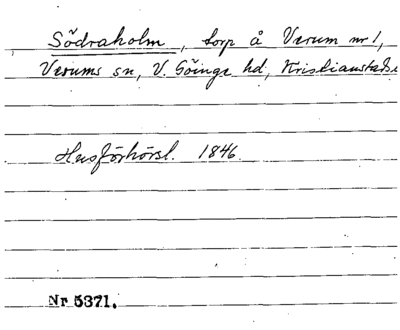 Södraholm, torp å Verum nr 1,
Verums sn, V. Göinge hd,
Husförhörsl. 1846.
Nr 5371.